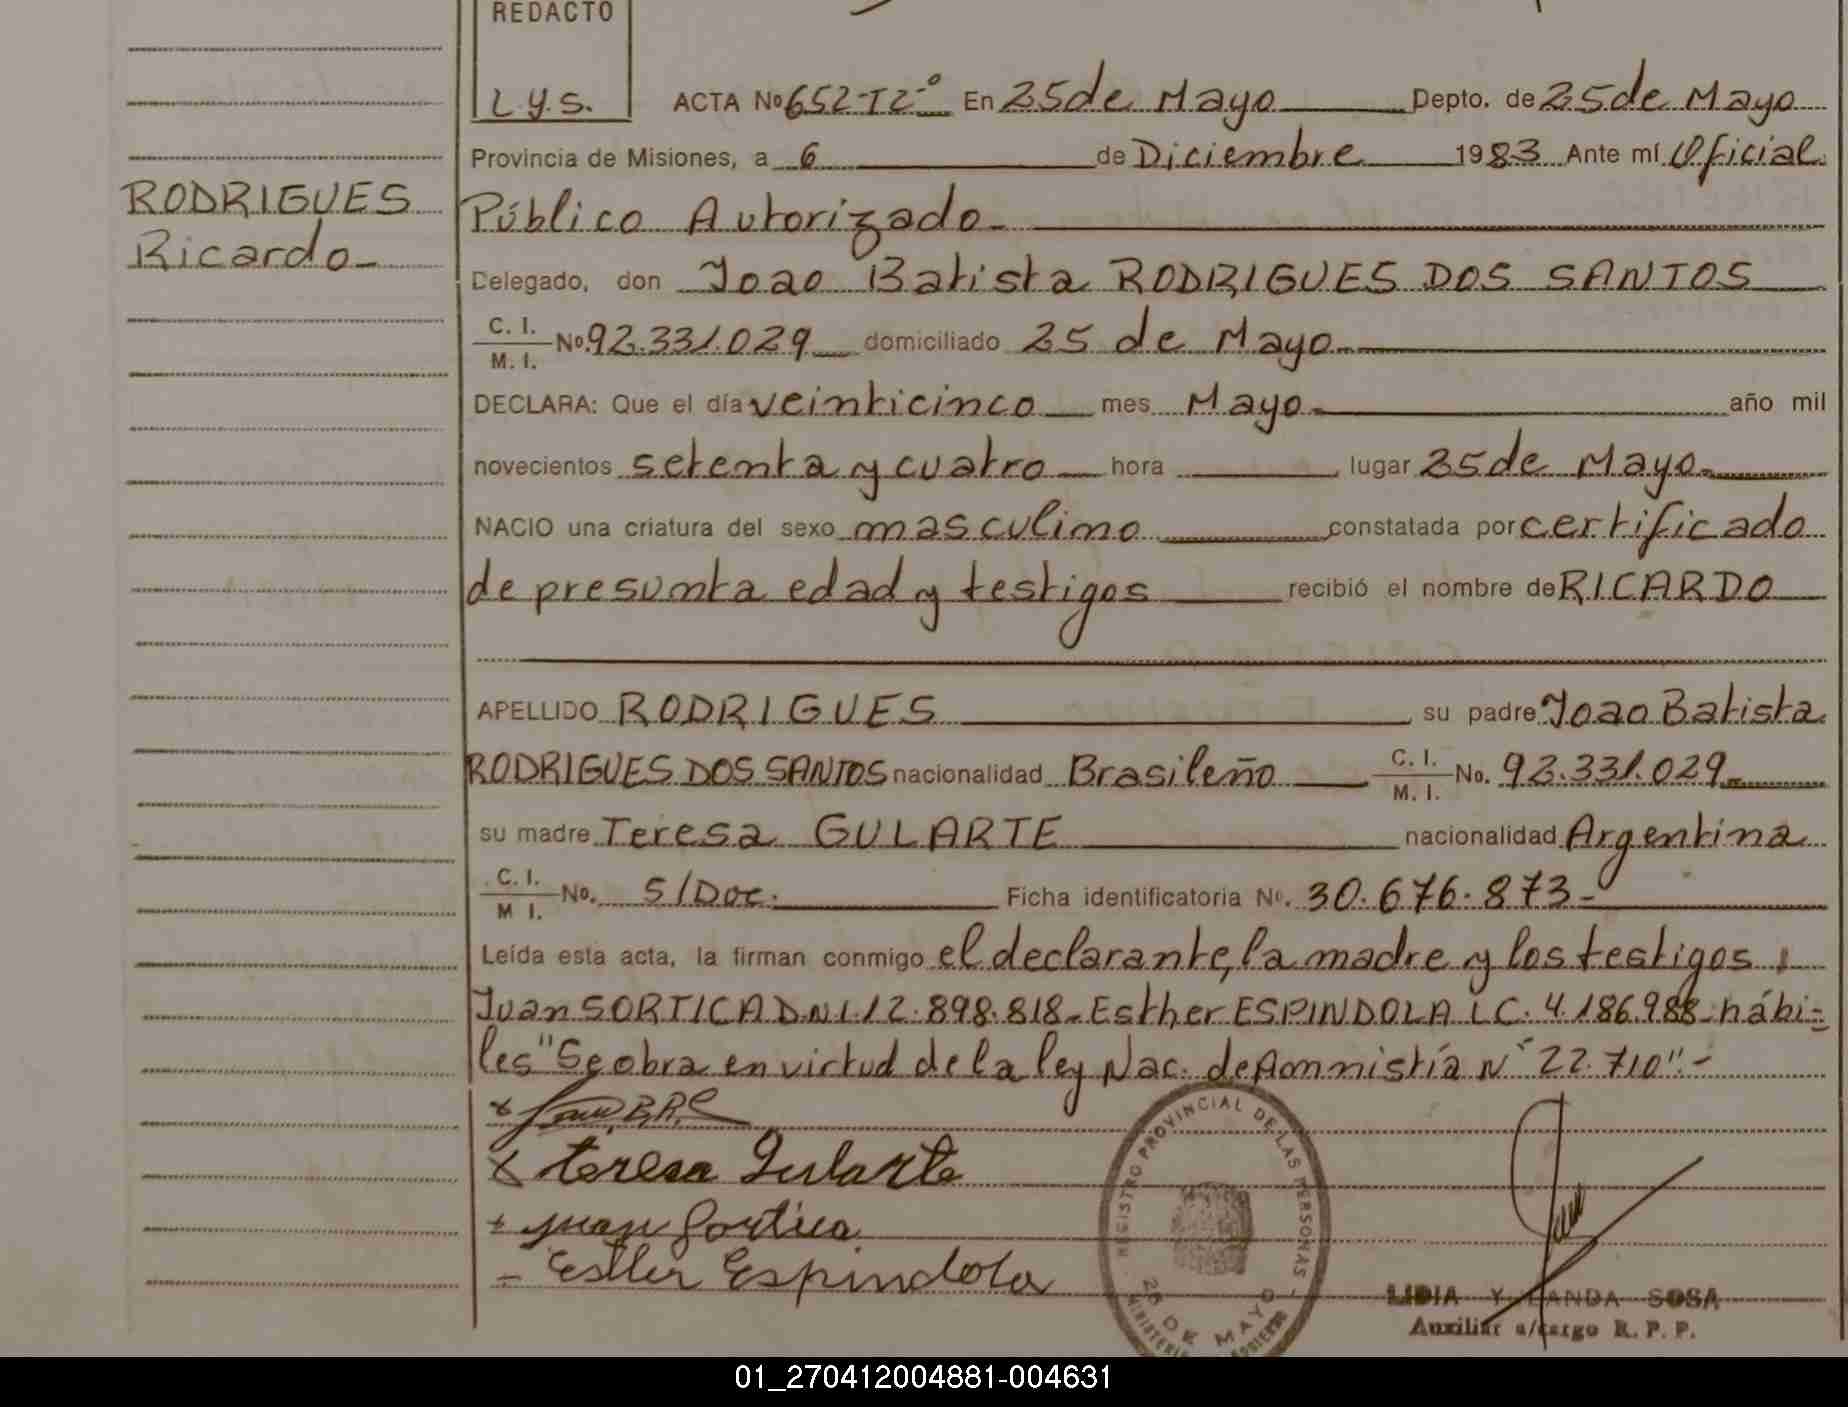 REDACTO
L.y.s.
ACTA No 652-T2-° En 25 de Mayo Depto. de 25 de Mayo
Provincia de Misiones, a 6 de Diciembre 1983 Ante mí Oficial
RODRIGUES
Ricardo-
Público Autorizado-
Delegado, don Joao Batista RODRIGUES DOS SANTOS
C. I. / M. I. No. 92.331.029 domiciliado 25 de Mayo-
DECLARA: Que el día veinticinco mes Mayo- año mil
novecientos setenta y cuatro hora lugar 25 de Mayo-
NACIO una criatura del sexo masculino constatada por certificado
de presunta edad y testigos recibió el nombre de RICARDO
APELLIDO RODRIGUES su padre Joao Batista
RODRIGUES DOS SANTOS nacionalidad Brasileño C. I. / M. I. No. 92.331.029-
su madre Teresa GULARTE nacionalidad Argentina
C. I. / M I. No. S/Doc. Ficha identificatoria No. 30.676.873-
Leída esta acta, la firman conmigo el declarante, la madre y los testigos,
Juan SORTICA D.N.I. 12.898.818- Esther ESPINDOLA L C. 4.186.988- hábi=
les "Se obra en virtud de la ley Nac. de Amnistía N° 22.710".-
teresa Gularte
juan Sortica
Esther Espindola
REGISTRO PROVINCIAL DE LAS PERSONAS
25 DE MAYO
LIDIA Y LANDA SOSA
Auxiliar a/cargo R. P. P.
01_270412004881-004631